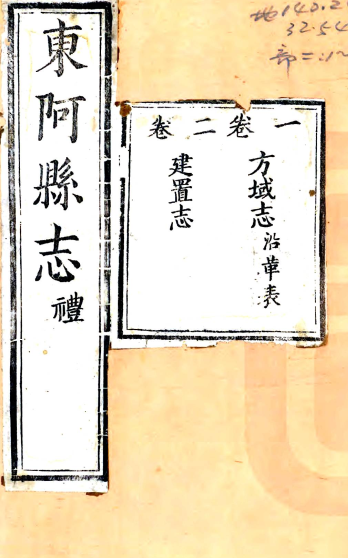 東阿縣志
禮
一卷
方域志 沿革表
二卷
建置志
地140.2
32.54